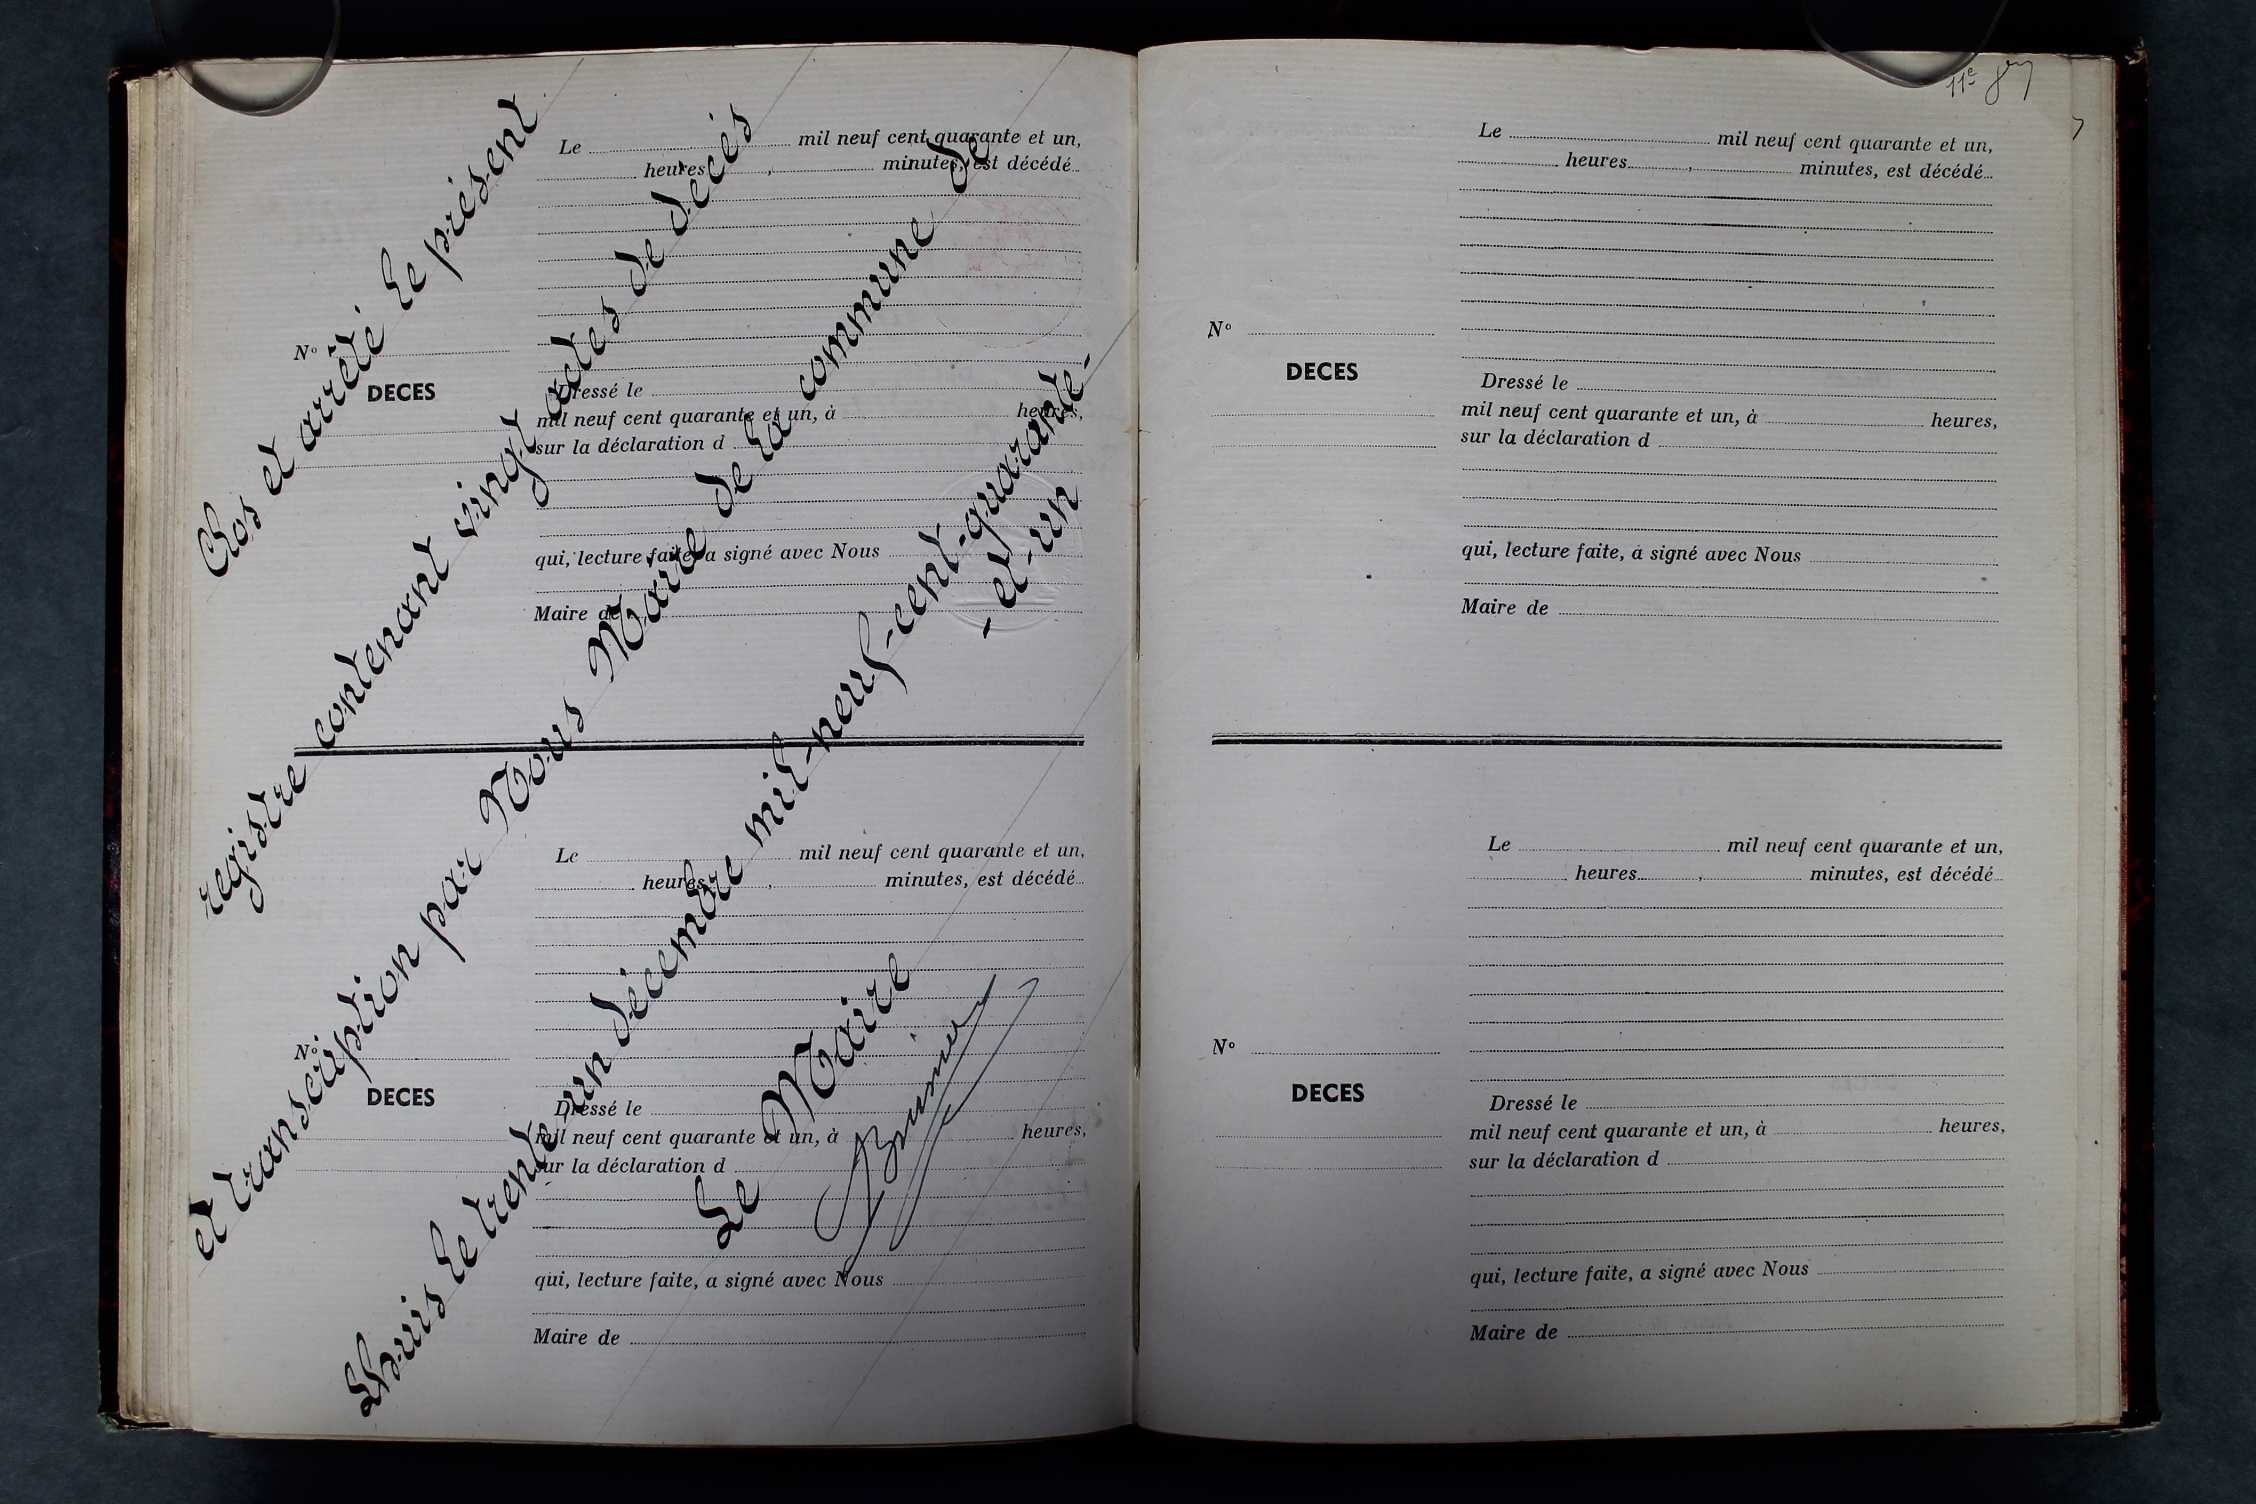 Le mil neuf cent quarante et un,
heures , minutes, est décédé
N°
DECES
Dressé le
mil neuf cent quarante et un, à heures,
sur la déclaration d
qui, lecture faite, a signé avec Nous
Maire de
Le mil neuf cent quarante et un,
heures , minutes, est décédé
N°
DECES
Dressé le
mil neuf cent quarante et un, à heures,
sur la déclaration d
qui, lecture faite, a signé avec Nous
Maire de
Clos et arrêté le présent
registre contenant vingt actes de décès
et transcription par Nous Maire de la commune de
le trente-un décembre mil-neuf-cent-quarante-
-et-un
Le Maire
11e
Le mil neuf cent quarante et un,
heures , minutes, est décédé
N°
DECES
Dressé le
mil neuf cent quarante et un, à heures,
sur la déclaration d
qui, lecture faite, a signé avec Nous
Maire de
Le mil neuf cent quarante et un,
heures , minutes, est décédé
N°
DECES
Dressé le
mil neuf cent quarante et un, à heures,
sur la déclaration d
qui, lecture faite, a signé avec Nous
Maire de